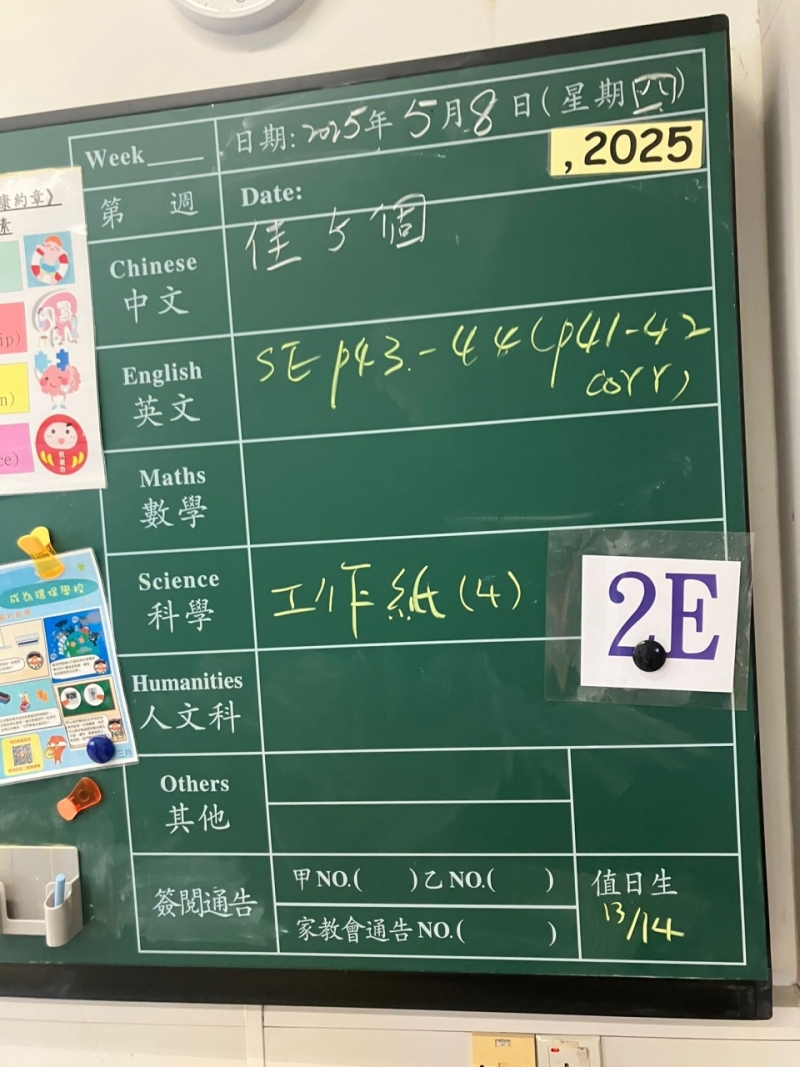 日期: 2025年5月8日(星期四)
Week____
, 2025
第 週
Date:
Chinese
中文
佳5個
English
英文
SE p43-44 (p41-42
corr)
Maths
數學
Science
科學
工作紙(4)
2E
Humanities
人文科
Others
其他
簽閱通告
甲NO.( )乙NO.( )
家教會通告NO.( )
值日生
13/14
康約章》
ip)
n)
ce)
成為環保學校